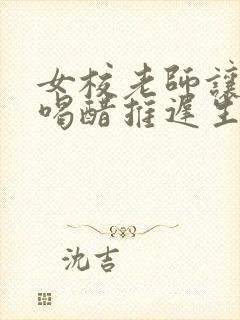 女校老師讓
喝醋推遲生
沈吉